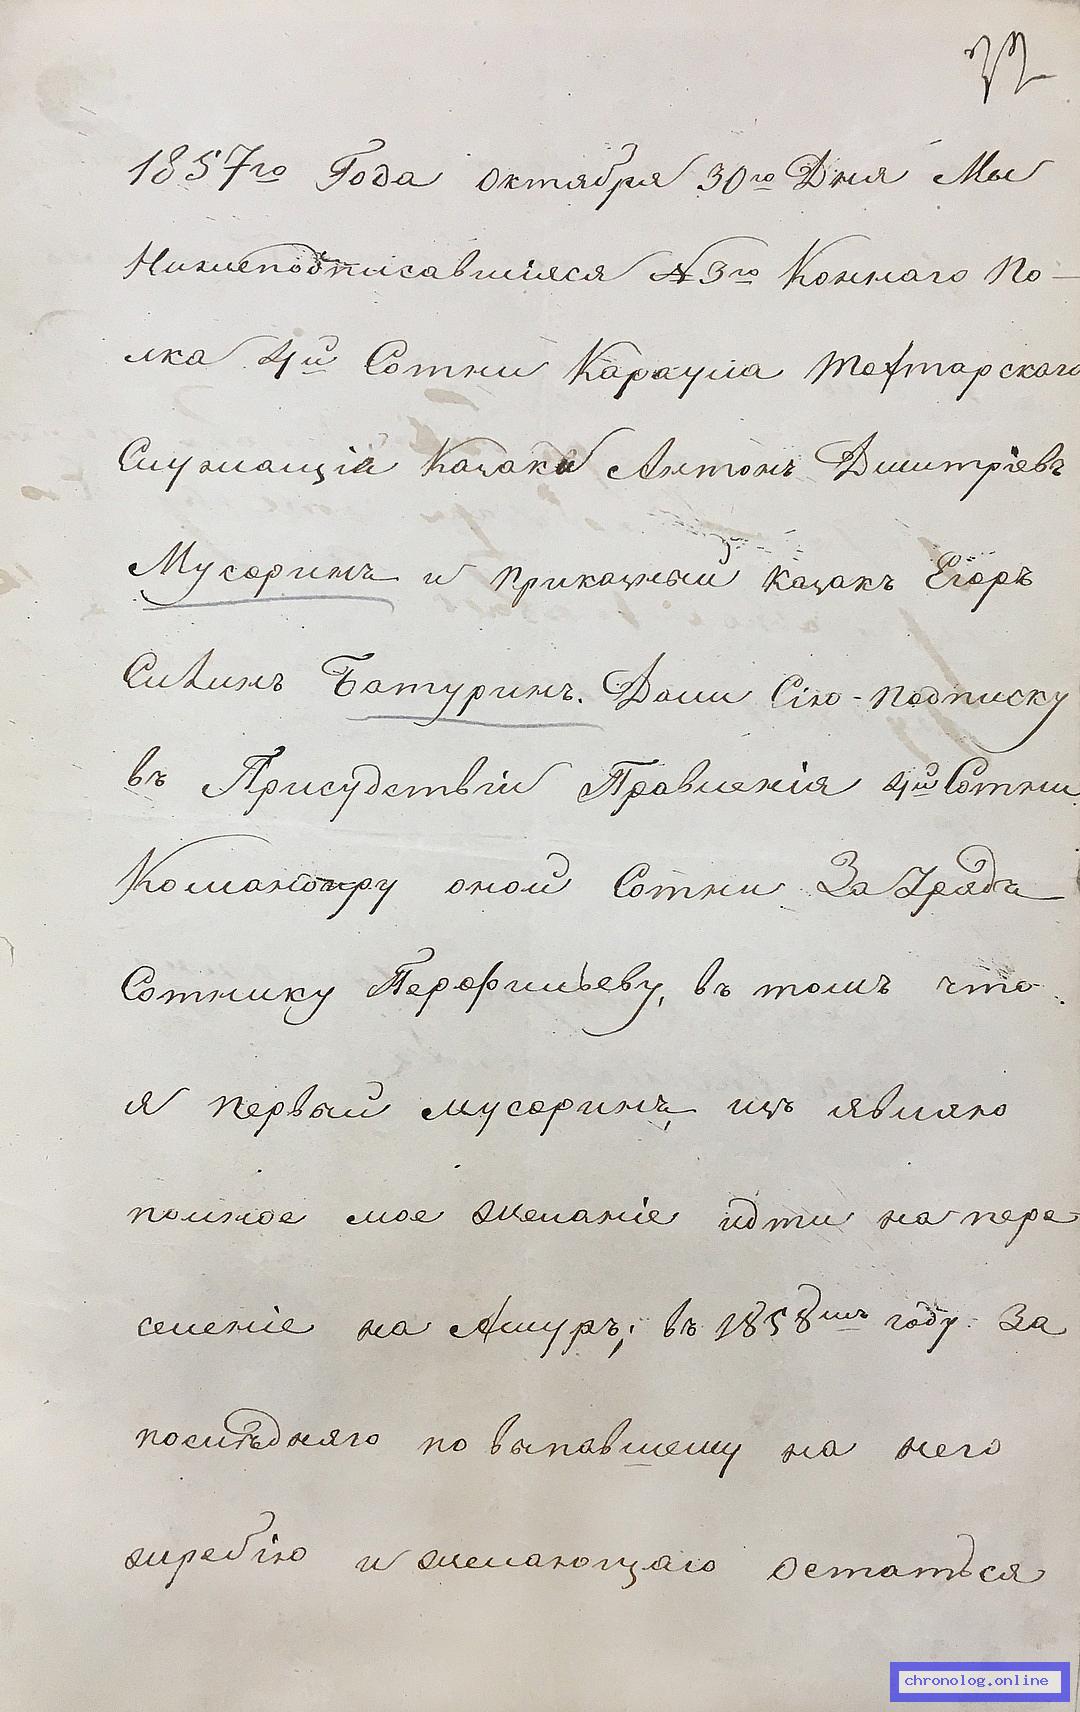 32
1857го Года октября 30го Дня Мы
Нижеподписавшіяся №3го Коннаго По-
лка 4й Сотни Караула Тохторскаго
Служащій Казакъ Антонъ Дмитріевъ
Мусоринъ и приказный казакъ Егоръ
Батуринъ. Дали Сію-подписку
въ Присудствіи Правленія 4й Сотни
Командиру оной Сотни За Урядъ
Сотнику Перфильеву, въ томъ что
я первый мусоринъ, изъ являю
полное мое желаніе идти на пере
селеніе на Амуръ; въ 1858мъ году. За
послѣдняго по выпавшему на него
жребію и желающаго остаться
chronolog.online